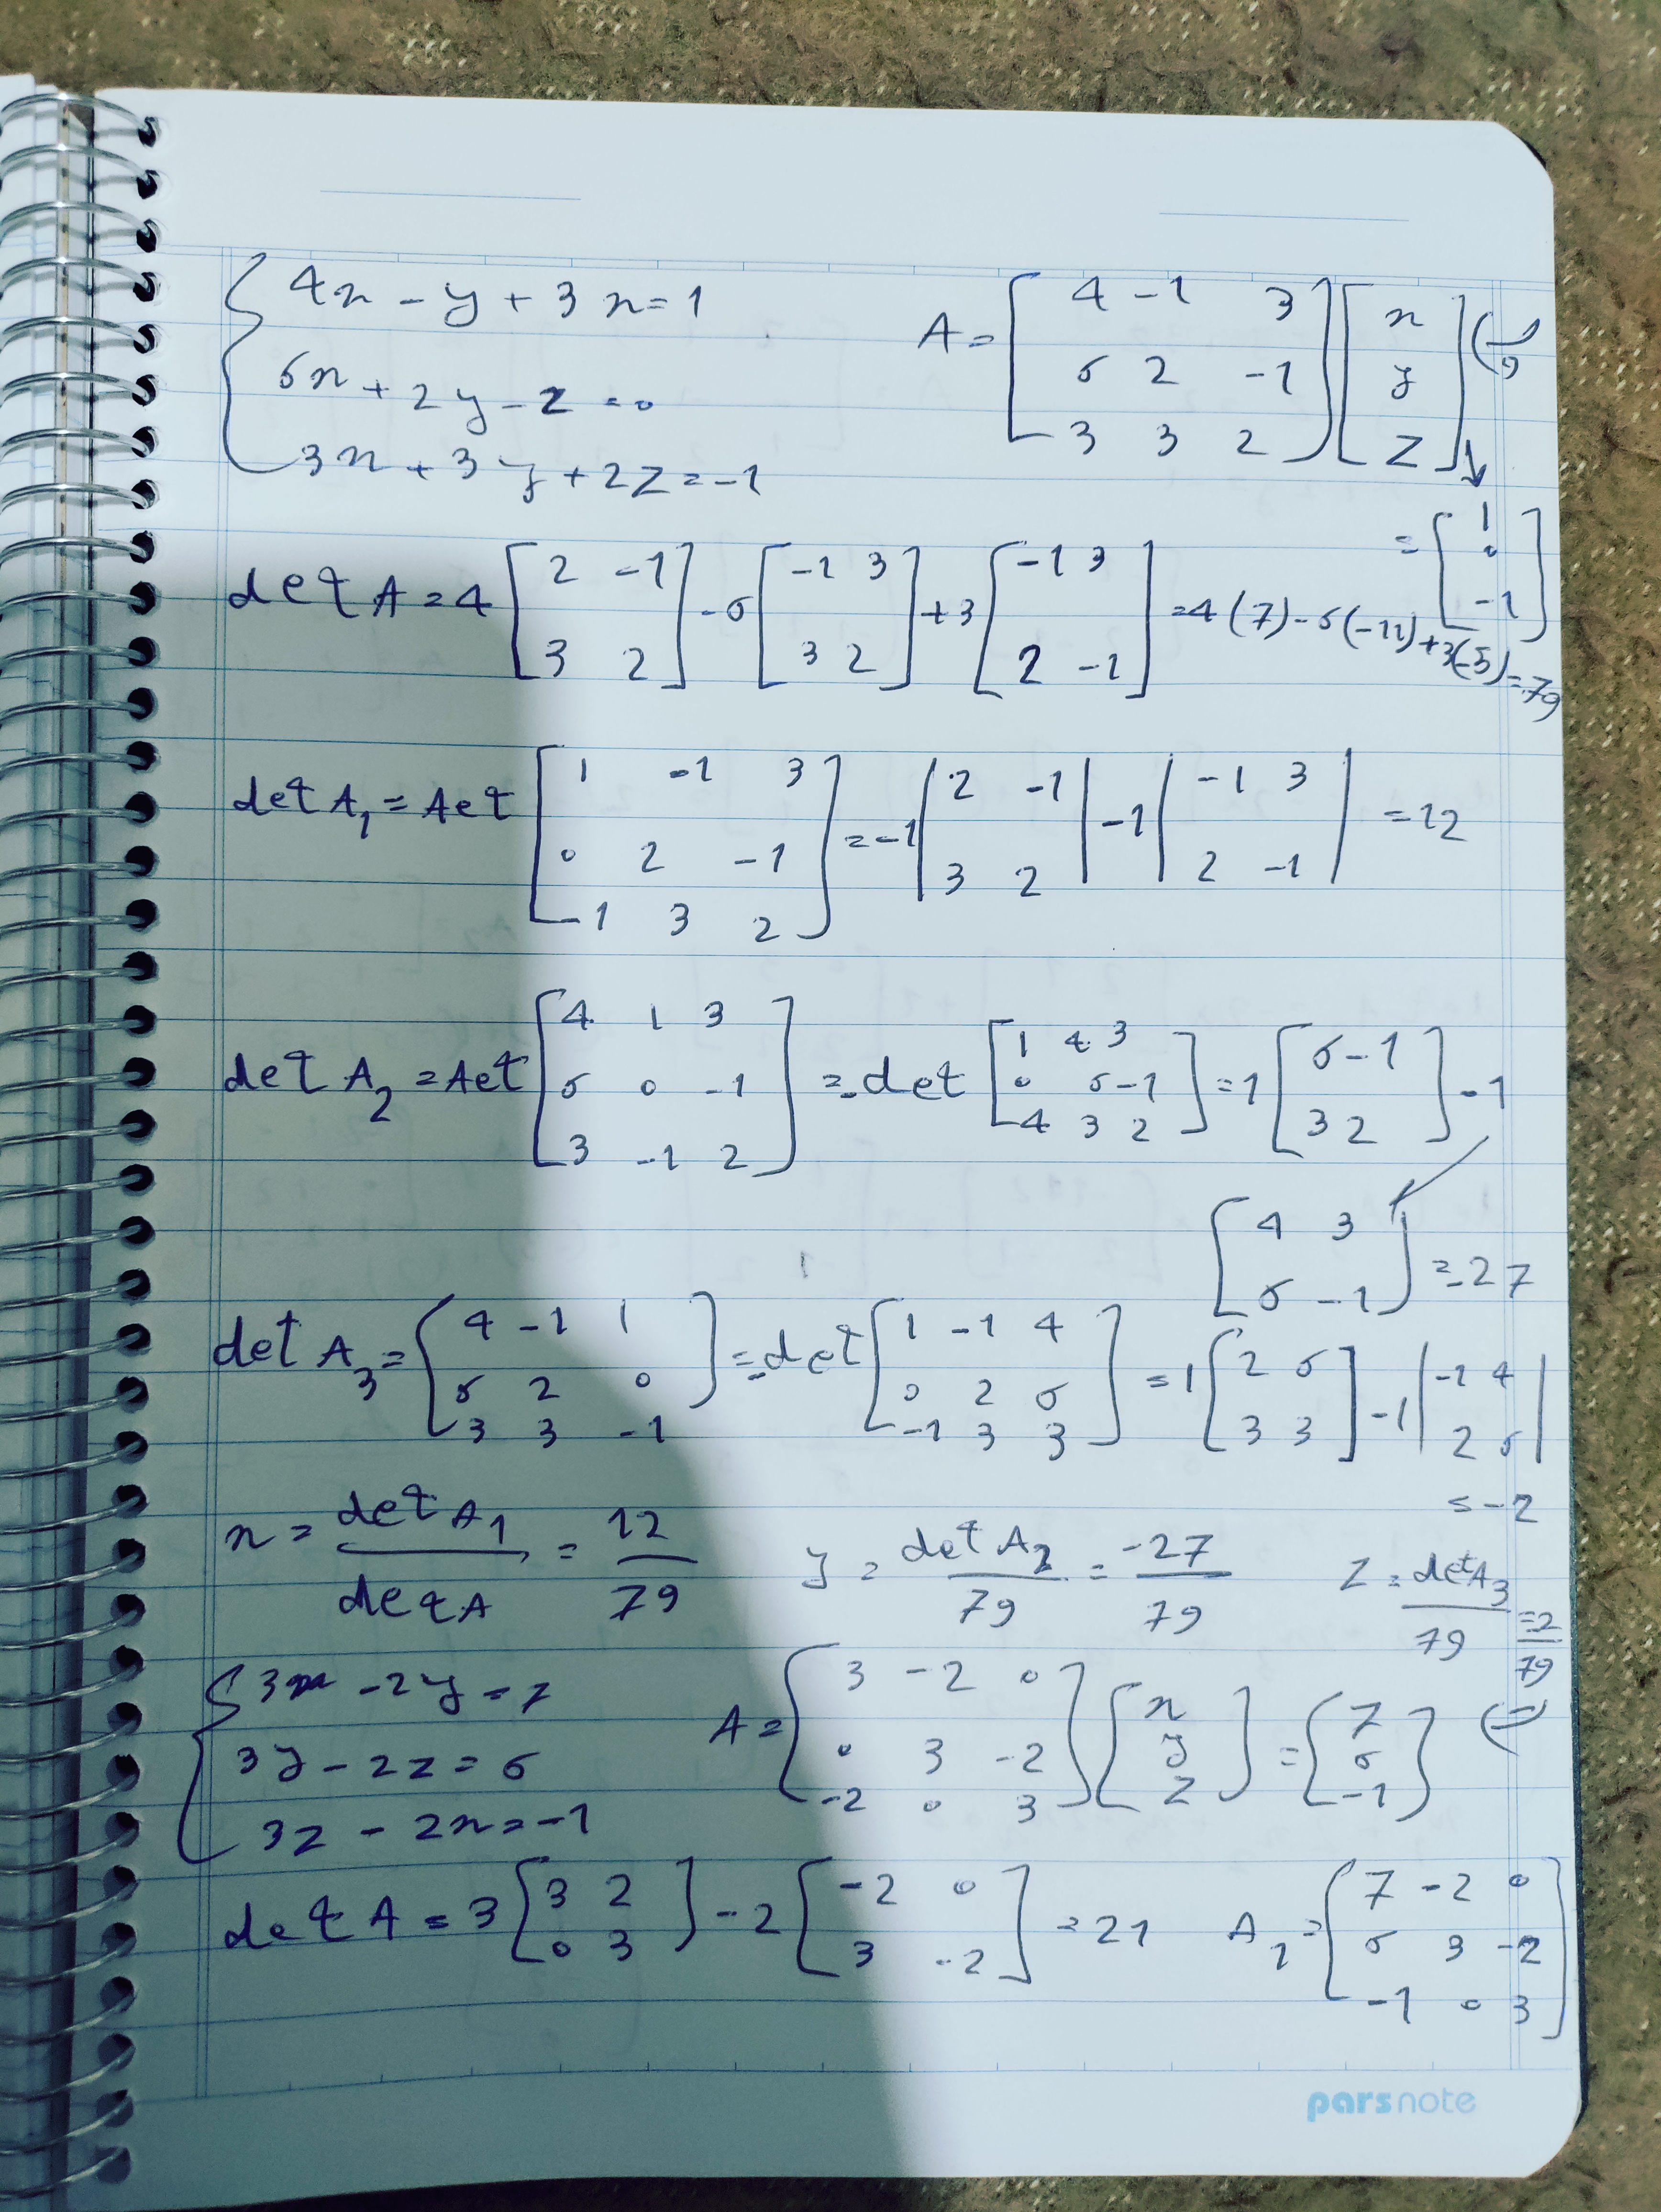 4x - y + 3x = 1
6x + 2y - z = 0
3x + 3y + 2z = -1
A = [4 -1 3; 6 2 -1; 3 3 2] [x; y; z]
= [1; 0; -1]
det A = 4 [2 -1; 3 2] - 6 [-1 3; 3 2] + 3 [-1 3; 2 -1] = 4(7) - 6(-11) + 3(-5) = 79
det A₁ = det [1 -1 3; 0 2 -1; -1 3 2] = -1 |2 -1; 3 2| - 1 |-1 3; 2 -1| = 12
det A₂ = det [4 1 3; 6 0 -1; 3 -1 2] = -det [1 4 3; 0 6 -1; -4 3 2] = 1 [6 -1; 3 2] - 1
[4 3; 6 -1] = -27
det A₃ = [4 -1 1; 6 2 0; 3 3 -1] = -det [1 -1 4; 0 2 6; -1 3 3] = 1 [2 6; 3 3] - 1 |-1 4; 2 6|
= -2
x = det A₁ / det A = 12/79 y = det A₂ / 79 = -27/79 z = det A₃ / 79 = -2/79
3x - 2y = 7
3y - 2z = 6
3z - 2x = -1
A = [3 -2 0; 0 3 -2; -2 0 3] [x; y; z] = [7; 6; -1]
det A = 3 [3 2; 0 3] - 2 [-2 0; 3 -2] = 21 A₁ = [7 -2 0; 6 3 -2; -1 0 3]
parsnote